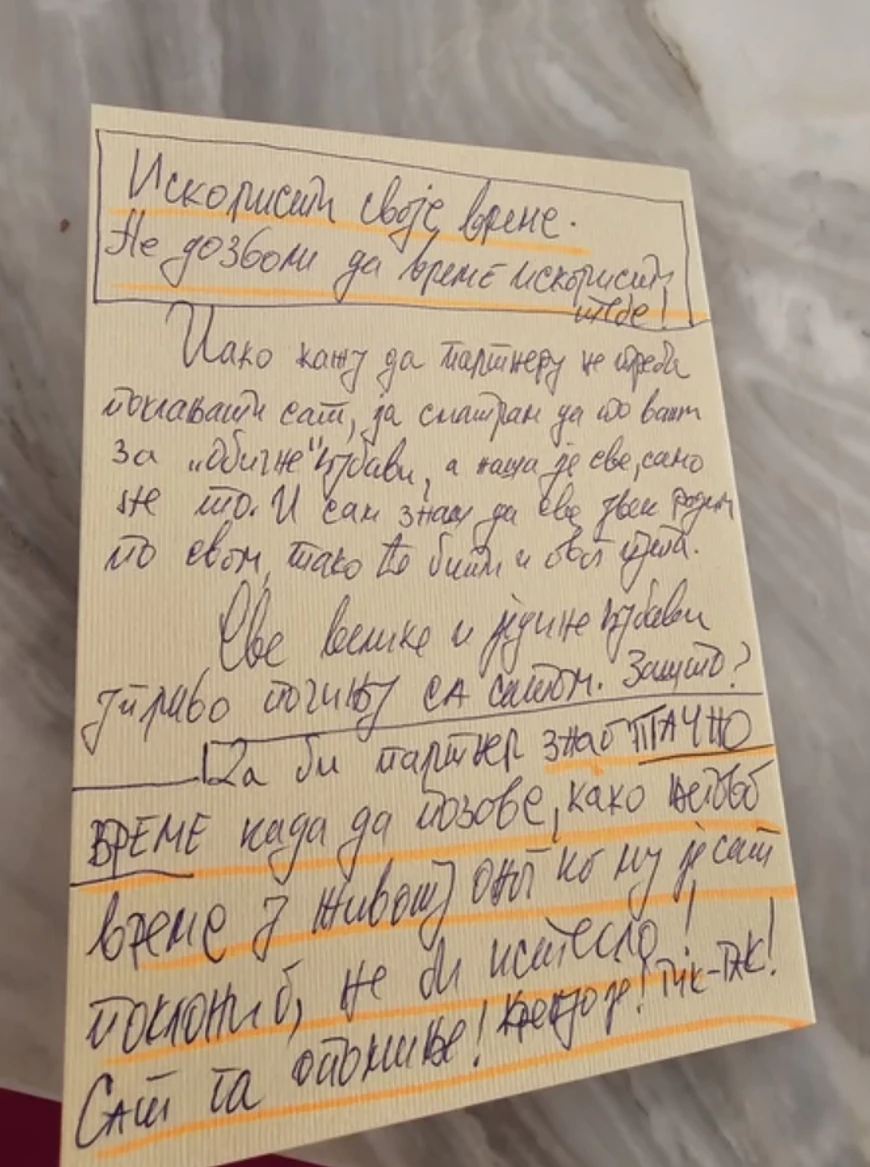 Искористи своје време.
Не дозволи да време искористи
тебе!
Иако кажу да партнеру не треба
поклањати сат, ја сматрам да то важи
за „обичне" љубави, а наша је све, само
не то. И сам знаш да све увек радим
по свом, тако ће бити и овог пута.
Све велике и једине љубави
управо почињу са сатом. Зашто?
Да би партнер знао ТАЧНО
ВРЕМЕ када да позове, како његово
време у животу оног ко му је сат
поклонио, не би истекло!
Сат га опомиње! Тик-так!